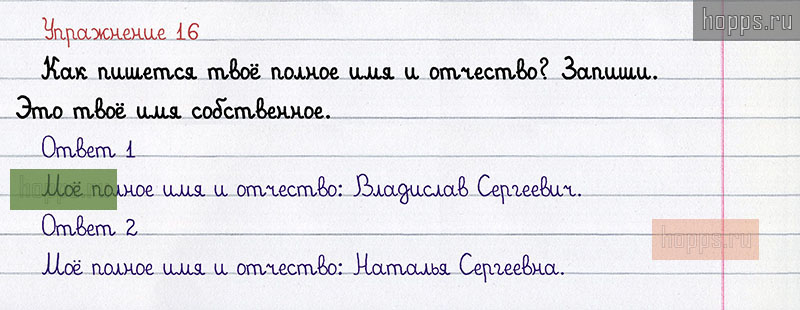 hopps.ru
Упражнение 16
Как пишется твоё полное имя и отчество? Запиши.
Это твоё имя собственное.
Ответ 1
hopps.ru
Моё полное имя и отчество: Владислав Сергеевич.
Ответ 2
hopps.ru
Моё полное имя и отчество: Наталья Сергеевна.